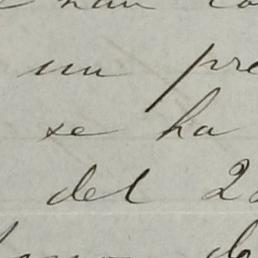 han co
un pre
se ha
del 2
de